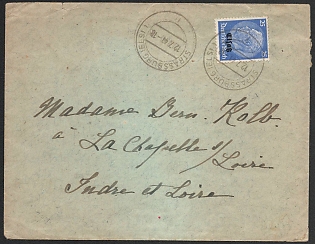 STRASSBURG (ELS)
25
Elsaß
STRASSBURG (ELS)
Madame Bern. Kolb.
à La Chapelle s/
Loire
Indre et Loire